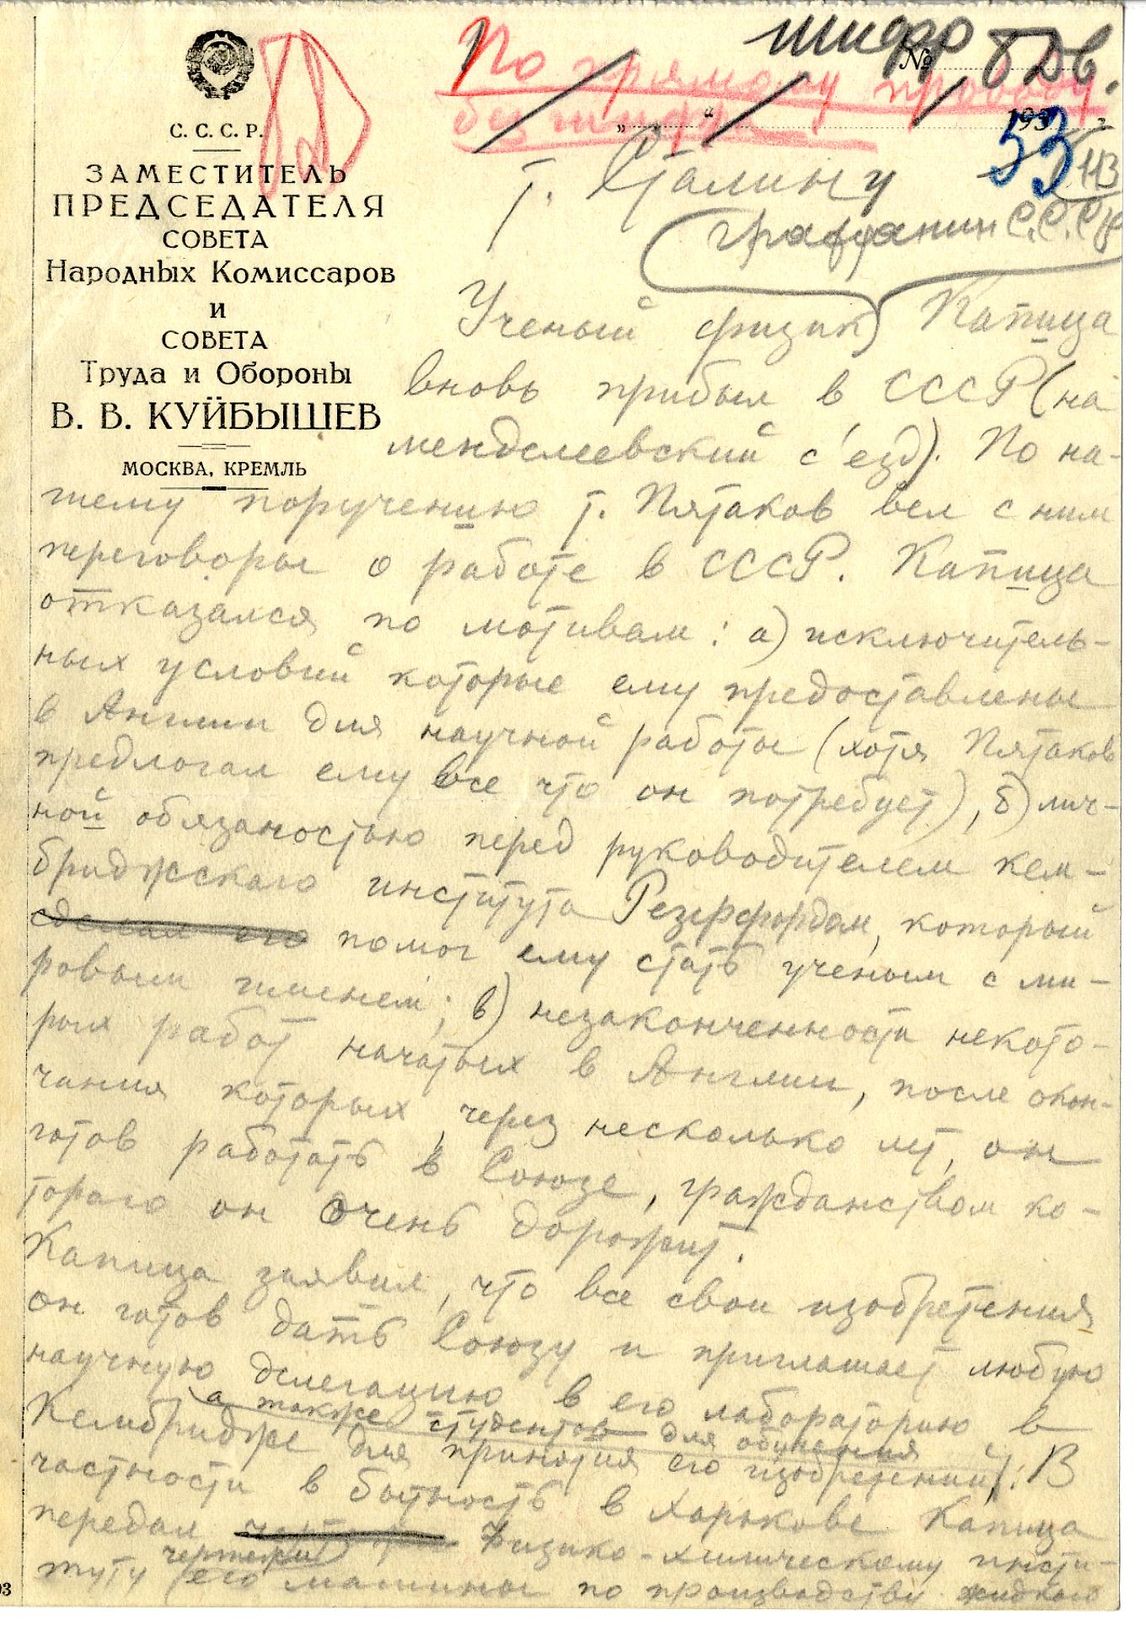 шифр
№
По прямому проводу
без шифра
193 г.
53
113
С. С. С. Р.
ЗАМЕСТИТЕЛЬ
ПРЕДСЕДАТЕЛЯ
СОВЕТА
Народных Комиссаров
и
СОВЕТА
Труда и Обороны
В. В. КУЙБЫШЕВ
МОСКВА, КРЕМЛЬ
т. Сталину
гражданин С.С.С.Р
Ученый физик Капица
вновь прибыл в СССР (на
менделеевский с'езд). По на-
шему поручению т. Пятаков вел с ним
переговоры о работе в СССР. Капица
отказался по мотивам: а) исключитель-
ных условий которые ему предоставлены
в Англии для научной работы (хотя Пятаков
предлогал ему все что он потребует), б) лич-
ной обязаностью перед руководителем кем-
бриджскаго института Резерфордом, который
сделал его помог ему стать ученым с ми-
ровым именем; в) незаконченность некото-
рых работ начатых в Англии, после окон-
чания которых, через несколько лет, он
готов работать в Союзе, гражданством ко-
тораго он очень дорожит.
Капица заявил, что все свои изобретения
он готов дать Союзу и приглашает любую
научную делегацию в его лабораторию в
а также студентов для обучения
Кембридже для принятия его изобретений. В
частности в бытность в Харькове Капица
передал Физико-химическому инсти-
чертежи
туту его машины по производству жидкого
93